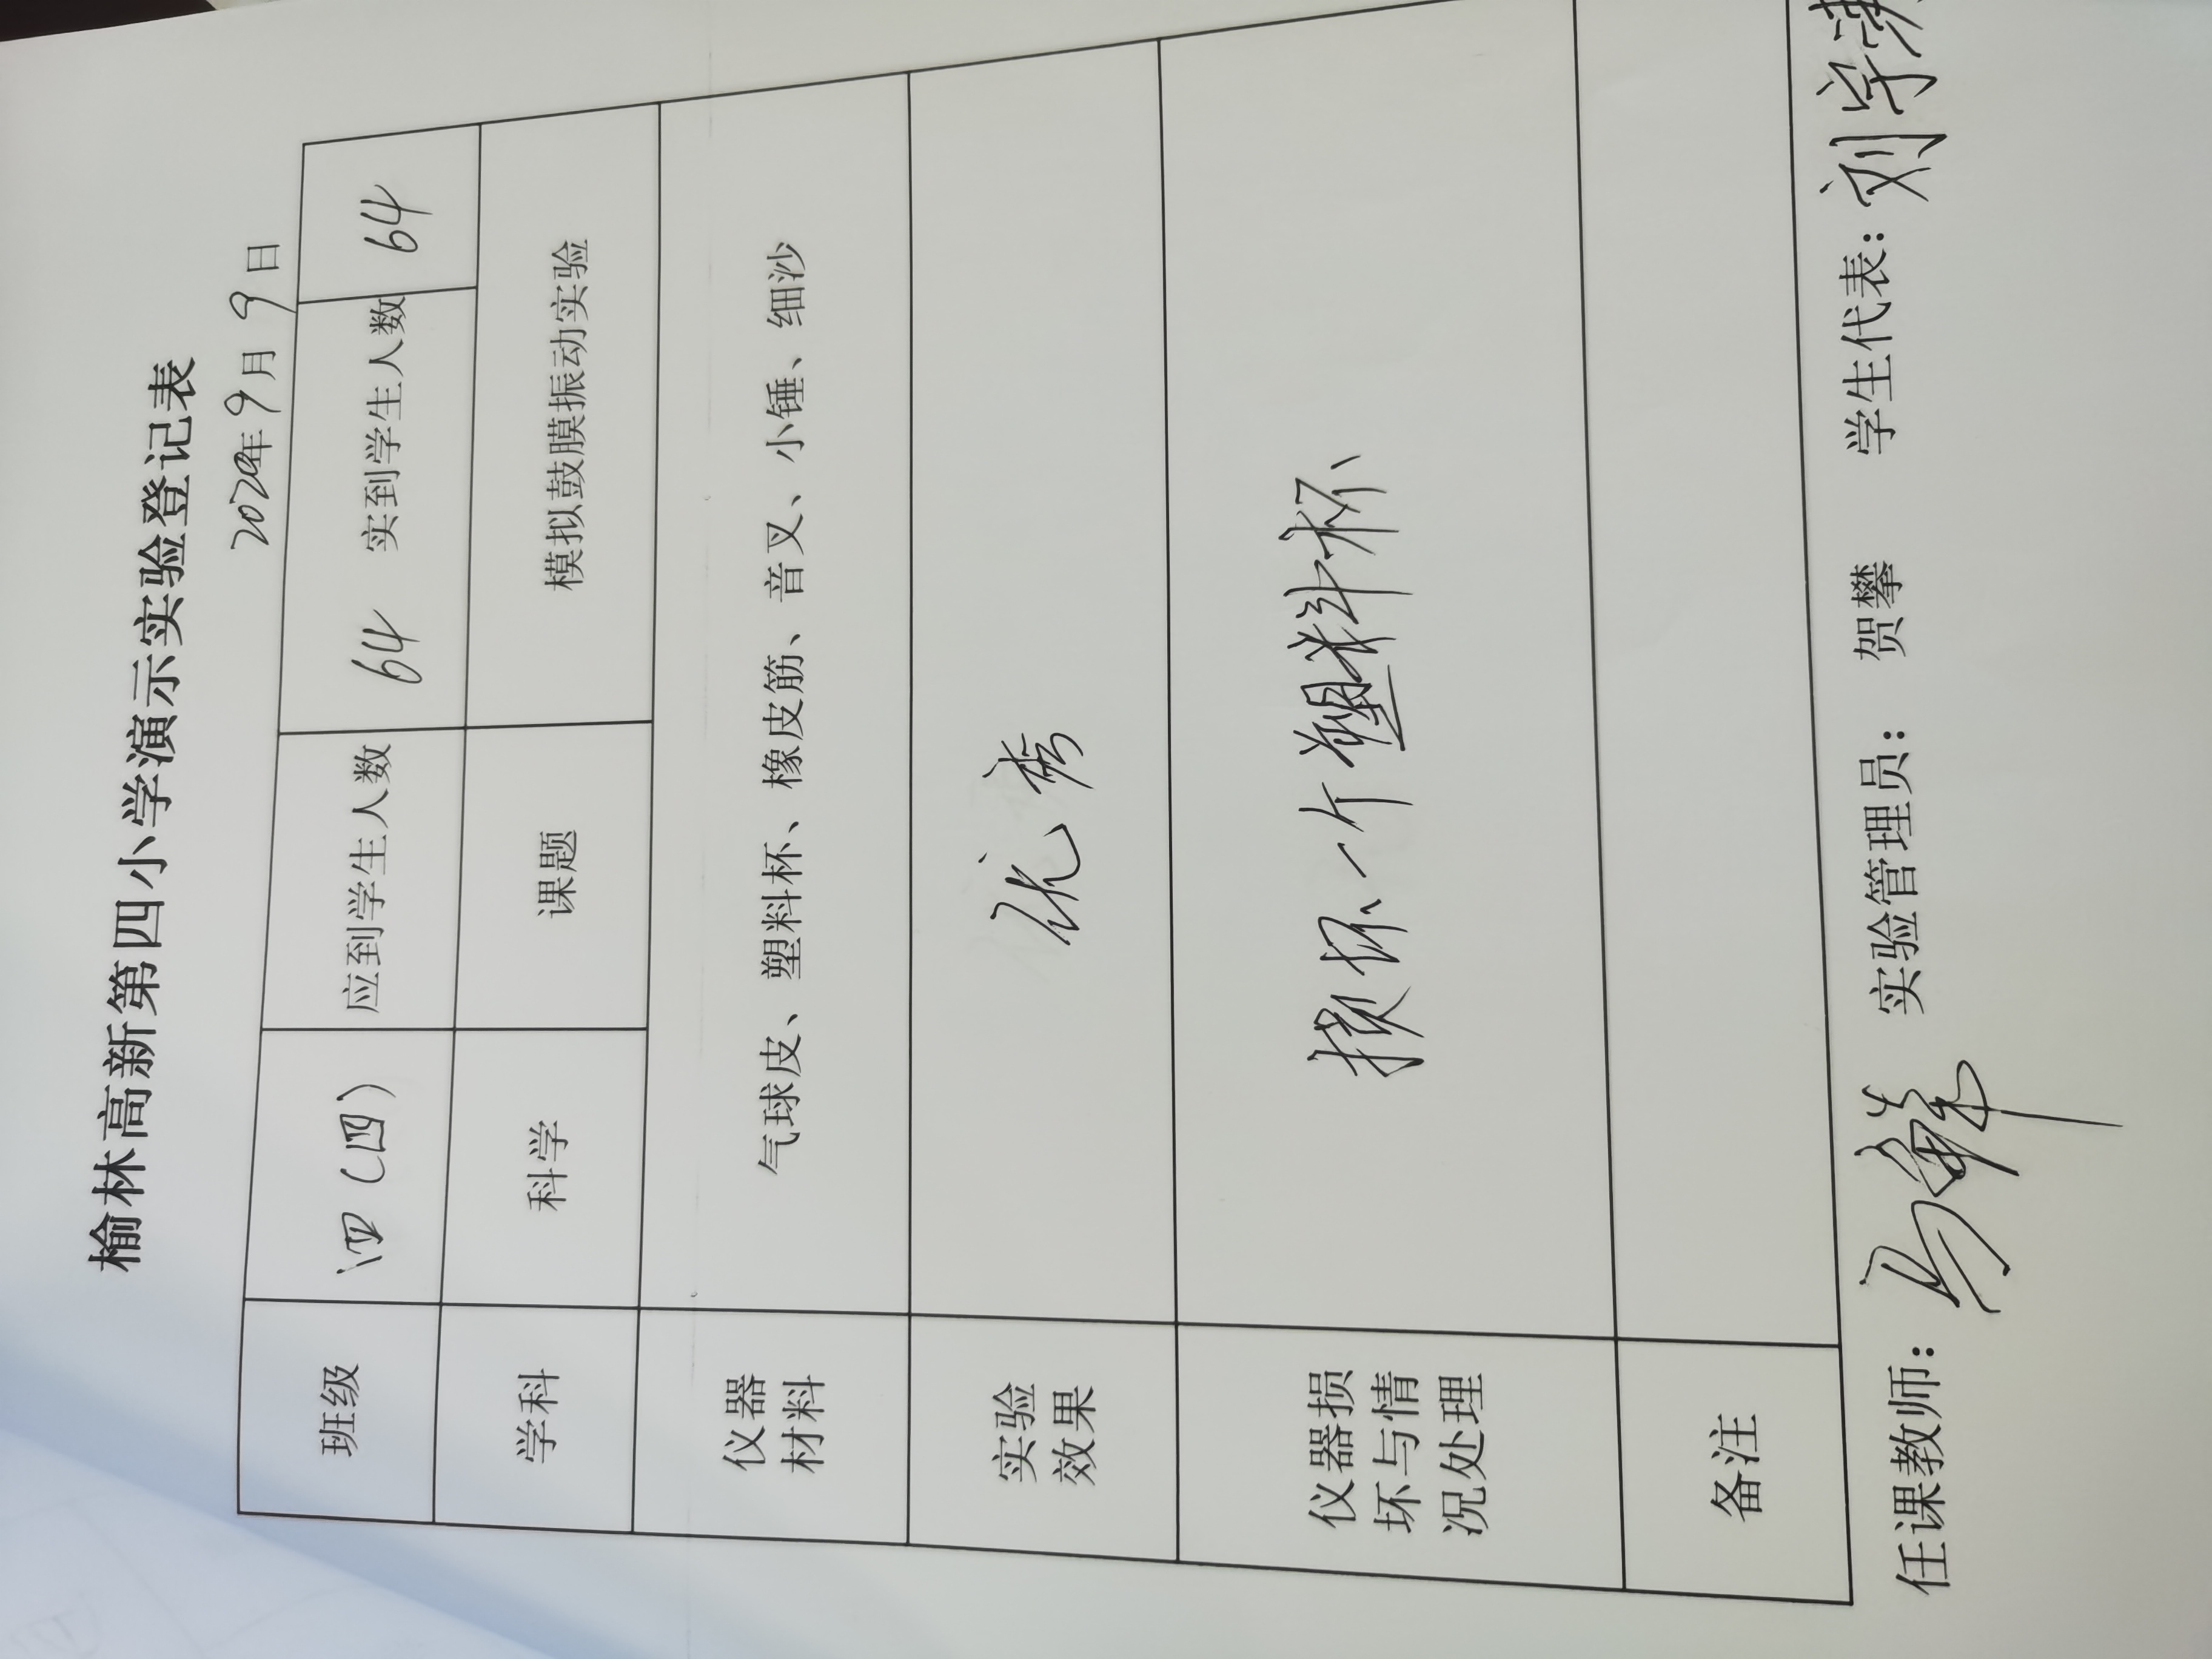 榆林高新第四小学演示实验登记表
2020年9月9日
班级 四(四) 应到学生人数 64 实到学生人数 64
学科 科学 课题 模拟鼓膜振动实验
仪器材料 气球皮、塑料杯、橡皮筋、音叉、小锤、细沙
实验效果 优秀
仪器损坏与情况处理 损坏一个塑料杯
备注
任课教师: 实验管理员: 贺攀 学生代表: 刘宇